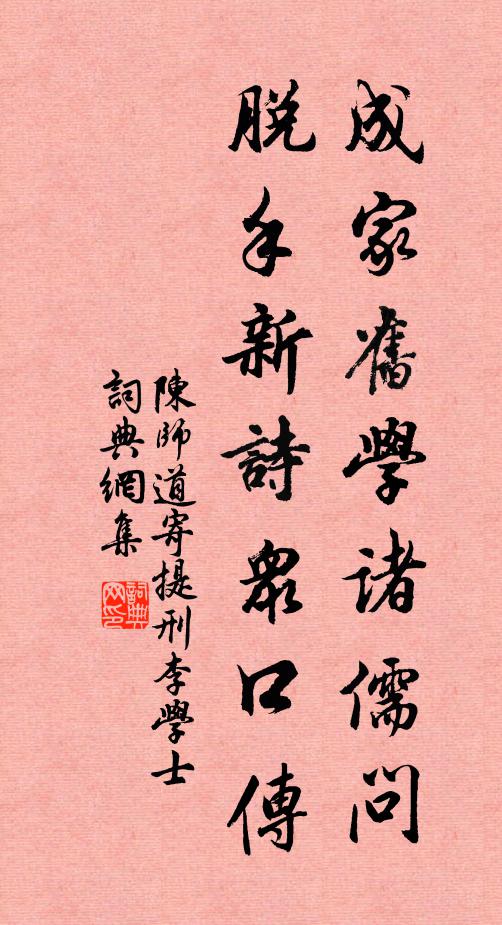 成家舊學諸儒問
脫手新詩衆口傳
陳師道寄提刑李學士
詞典網集
詞典网印